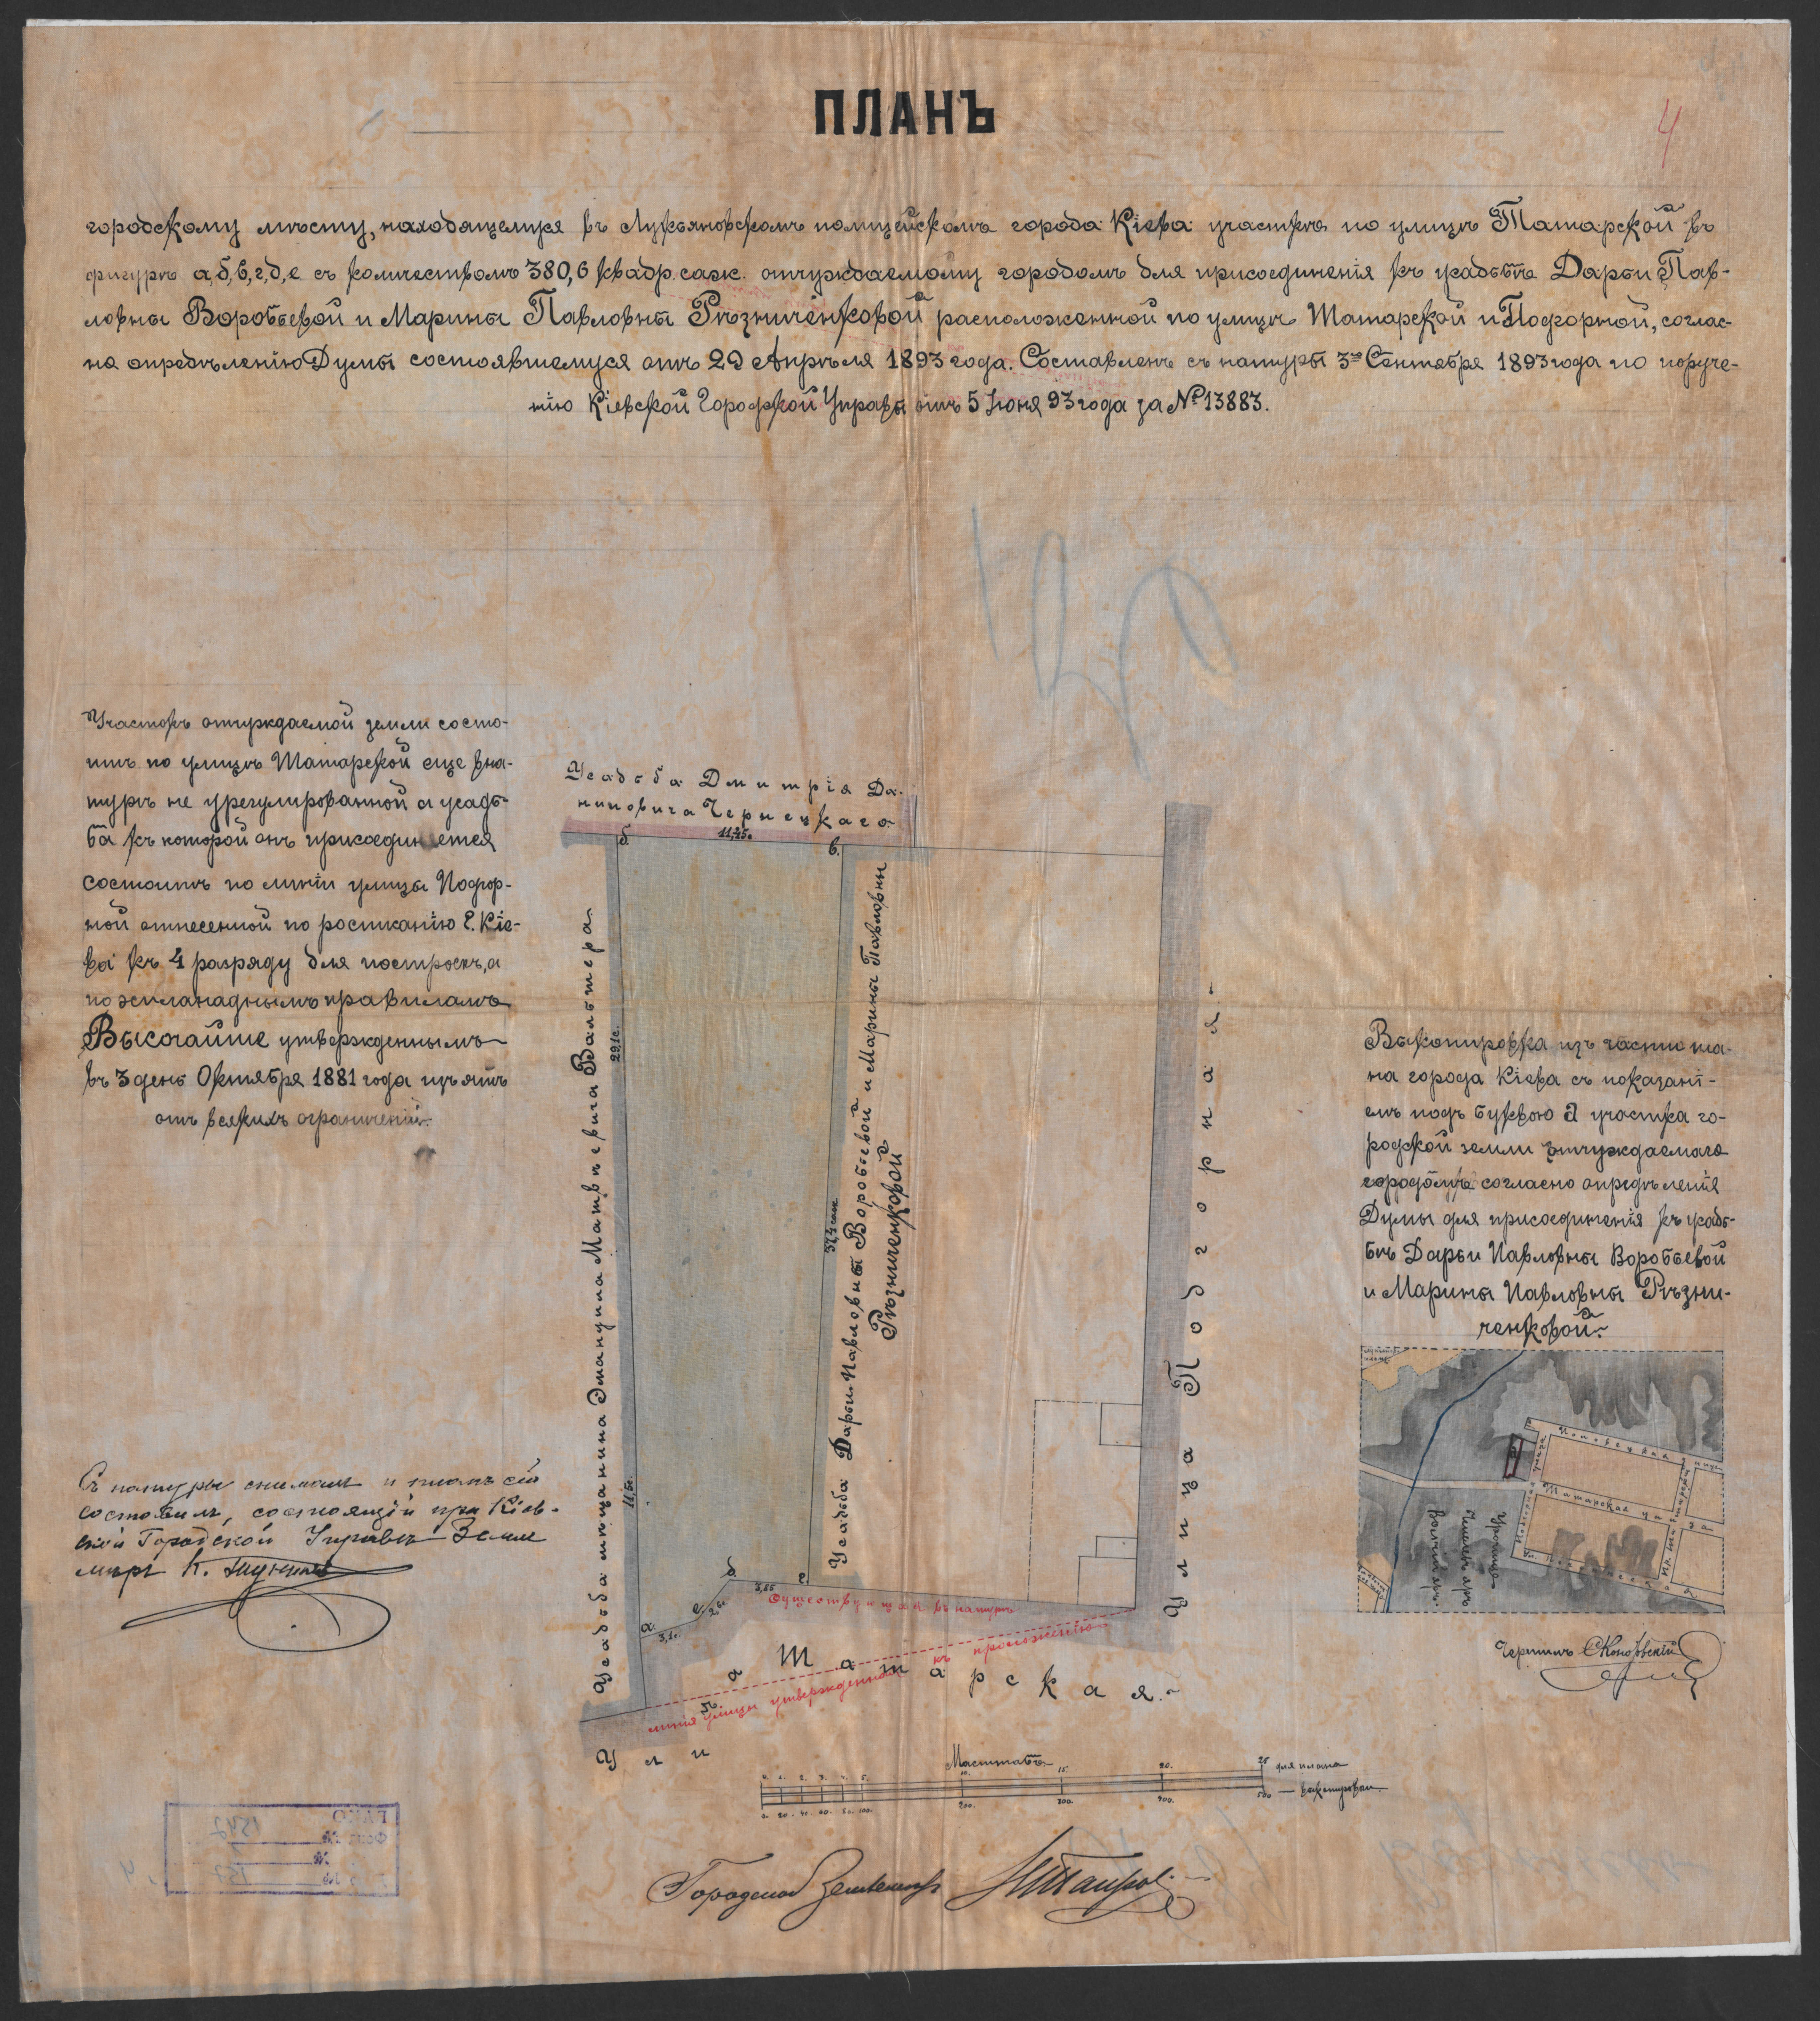 ПЛАНЪ
4
городскому мѣсту, находящемуся въ Лукьяновскомъ полицейскомъ города Кіева участкѣ по улицѣ Татарской въ
фигурѣ а, б, в, г, д, е съ количествомъ 380,6 квадр. саж. отчуждаемому городомъ для присоединенія къ усадьбѣ Дарьи Пав-
ловны Воробьевой и Марины Павловны Рѣзниченковой расположенной по улицѣ Татарской и Подгорной, соглас-
но опредѣленію Думы состоявшемуся отъ 29 Апрѣля 1893 года. Составленъ съ натуры 3го Сентября 1893 года по поруче-
нію Кіевской Городской Управы отъ 5 Іюня 93 года за № 13883.
Участокъ отчуждаемой земли состо-
итъ по улицѣ Татарской еще вна-
турѣ не урегулированной а усадь-
ба къ которой онъ присоединяется
состоитъ по линіи улицы Подгор-
ной отнесенной по росписанію г. Кіе-
ва къ 4 разряду для построекъ, а
по эспланаднымъ правиламъ
Высочайше утвержденнымъ
въ 3 день Октября 1881 года изъятъ
отъ всякихъ ограниченій.
Усадьба Дмитрія Да-
ниловича Чернецкаго
б.
11,25с.
в.
Усадьба мѣщанина Эмануила Матвѣевича Вальтера
29,1с.
11,5с.
37,4 саж
Усадьба Дарьи Павловны Воробьевой и Марины Павловны
Рѣзниченковой
Улица Подгорная
а.
3,1с.
е.
2с.
д
3,85
г.
существующая въ натурѣ
линія улицы утвержденная къ проложенію
Улица Татарская.
Выкопировка изъ части пла-
на города Кіева съ показані-
емъ подъ буквою а участка го-
родской земли отчуждаемаго
городомъ согласно опредѣленія
Думы для присоединенія къ усадь-
бѣ Дарьи Павловны Воробьевой
и Марины Павловны Рѣзни-
ченковой.
Татарская ул
Урочище
Волчій яръ.
Съ натуры снималъ и планъ сей
составилъ, состоящій при Кіев-
ской Городской Управѣ Земле
мѣръ К.
Чертилъ
Масштабъ
0. 1. 2. 3. 4. 5. 10. 15. 20. 25 для плана
0. 20. 40. 60. 80. 100. 200. 300. 400. 500 — выкопировки
Городской Землемѣръ